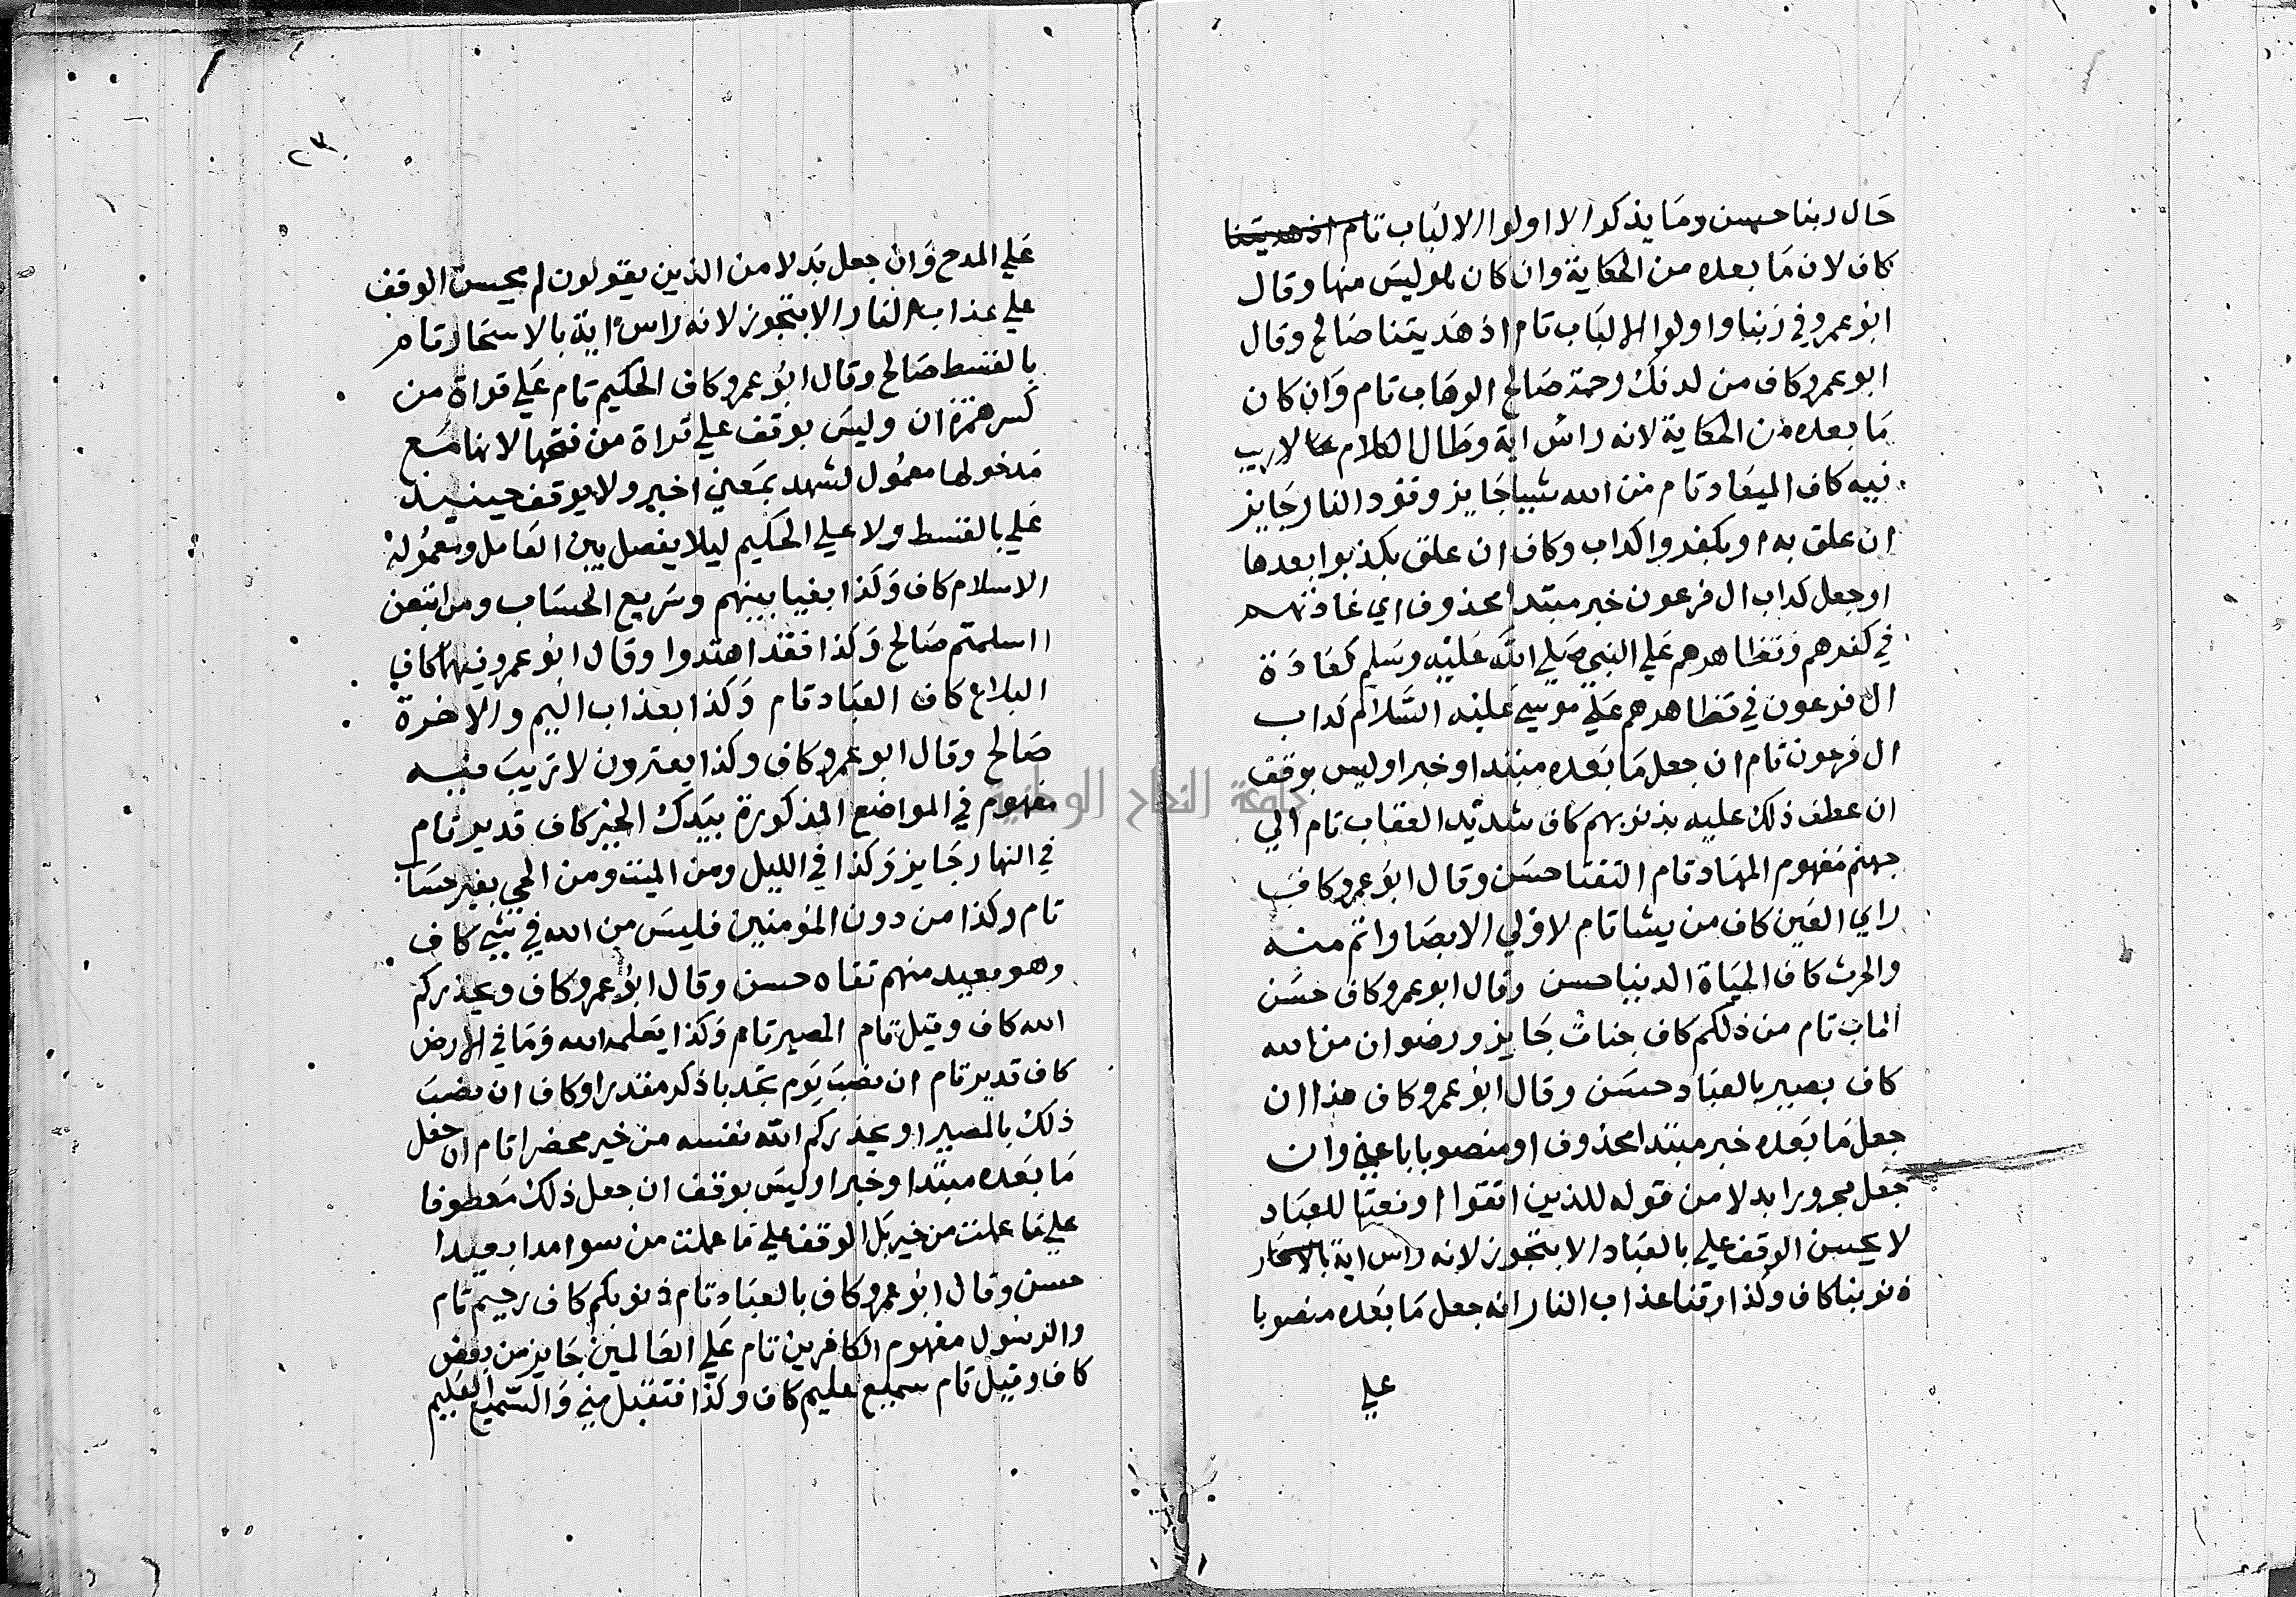 حال ربنا حسن وما يذكر الا اولوا الالباب تام اذ هديتنا
كاف لان ما بعده من الحكاية وان كان لو ليس منها وقال
ابو عمرو في ربنا واولوا الالباب تام اذ هديتنا صالح وقال
ابو عمرو كاف من لدنك رحمة صالح الوهاب تام وان كان
ما بعده من الحكاية لانه راس اية وطال الكلام لا ريب
فيه كاف الميعاد تام من الله شيا جايز وقود النار جايز
ان علق به او بكفروا كداب وكاف ان علق بكذبوا بعدها
او جعل كداب ال فرعون خبر مبتدا محذوف اي عادتهم
في كفرهم وتظاهرهم علي النبي صلي الله عليه وسلم كعادة
ال فرعون في تظاهرهم علي موسي عليه السلام كداب
ال فرعون تام ان جعل ما بعده مبتدا وخبرا وليس بوقف
ان عطف ذلك عليه بذنوبهم كاف شديد العقاب تام الي
جهنم مفهوم المهاد تام التقتا حسن وقال ابو عمرو كاف
راي العين كاف من يشا تام لاولي الابصار اتم منه
والحرث كاف الحياة الدنيا حسن وقال ابو عمرو كاف حسن
الماب تام من ذلكم كاف جنات جايز ورضوان من الله
كاف بصير بالعباد حسن وقال ابو عمرو كاف هذا ان
جعل ما بعده خبر مبتدا محذوف او منصوبا باعني وان
جعل مجرورا بدلا من قوله للذين اتقوا او نعتا للعباد
لا يحسن الوقف علي بالعباد الا بتجوز لانه راس اية بالاسحار
ذنوبنا كاف وكذا وقنا عذاب النار ان جعل ما بعده منصوبا
علي
٢٣
علي المدح وان جعل بدلا من الذين يقولون لم يحسن الوقف
علي عذاب النار الا بتجوز لانه راس اية بالاسحار تام
بالقسط صالح وقال ابو عمرو كاف الحكيم تام علي قراة من
كسر همزة ان وليس بوقف علي قراة من فتحها لانها مع
مدخولها معمول لشهد بمعني اخبر ولا يوقف حينيذ
علي بالقسط ولا علي الحكيم ليلا يفصل بين العامل ومعموله
الاسلام كاف وكذا بغيا بينهم وسريع الحساب ومن اتبعن
ااسلمتم صالح وكذا فقد اهتدوا وقال ابو عمرو فيهما كاف
البلاغ كاف العباد تام وكذا بعذاب اليم والاخرة
صالح وقال ابو عمرو كاف وكذا يفترون لا ريب فيه
مفهوم في المواضع المذكورة بيدك الخير كاف قدير تام
في النهار جايز وكذا في الليل ومن الميت ومن الحي بغير حساب
تام وكذا من دون المؤمنين فليس من الله في شي كاف
وهو بعيد منهم تقاه حسن وقال ابو عمرو كاف ويحذركم
الله كاف وقيل تام المصير تام وكذا يعلمه الله وما في الارض
كاف قدير تام ان نصب يوم تجد باذكر مقدرا وكاف ان نصب
ذلك بالمصير او يحذركم الله نفسه من خير محضرا تام ان جعل
ما بعده مبتدا وخبرا وليس بوقف ان جعل ذلك معطوفا
علي ما عملت من خير بل الوقف علي ما عملت من سو امدا بعيدا
حسن وقال ابو عمرو كاف بالعباد تام ذنوبكم كاف رحيم تام
والرسول مفهوم الكافرين تام علي العالمين جايز من بعض
كاف وقيل تام سميع عليم كاف وكذا فتقبل مني والسميع العليم
جامعة النجاح الوطنية